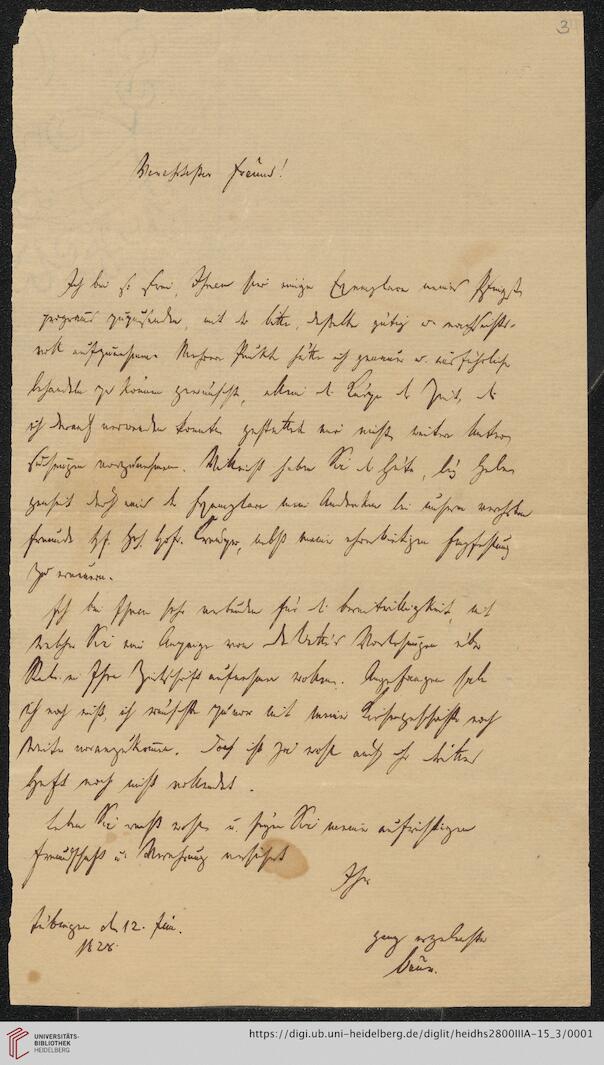 3
Verehrtester Freund!
Ich bin so frei, Ihnen hier einige Exemplare meines Pfingst-
programms zuzusenden, mit der Bitte, dasselbe gütig u. nachsichts-
voll aufzunehmen. Mehrere Punkte hätte ich genauer u. ausführlicher
behandeln zu können gewünscht, allein die Kürze der Zeit, die
ich darauf verwenden konnte, gestattete mir nicht, weitere Unter-
suchungen vorzunehmen. Vielleicht haben Sie die Güte, bei
durch eines der Exemplare mein Andenken bei unserm verehrten
Freunde H. Hofr. Creuzer, nebst meiner ehrerbietigen Empfehlung
zu erneuern.
Ich bin Ihnen sehr verbunden für die Bereitwilligkeit, mit
welcher Sie eine Anzeige von de Wette's Vorlesungen über
Rel. in Ihre Zeitschrift aufnehmen wollen. Angefangen habe
ich noch nicht, ich wünschte zuvor mit meiner noch
weiter voranzukommen. Doch ist ja wohl auch Ihr drittes
Heft noch nicht vollendet.
Leben Sie recht wohl u. seyen Sie meiner aufrichtigen
Freundschaft u. Verehrung versichert
Ihr
Tübingen d. 12. Jun.
1828.
ganz ergebenster
Baur.
UNIVERSITÄTS-
BIBLIOTHEK
HEIDELBERG
https://digi.ub.uni-heidelberg.de/diglit/heidhs2800IIIA-15_3/0001